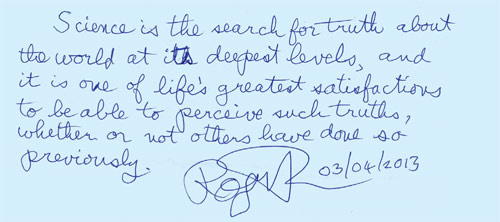 Science is the search for truth about
the world at its deepest levels, and
it is one of life's greatest satisfactions
to be able to perceive such truths,
whether or not others have done so
previously.
03/04/2013